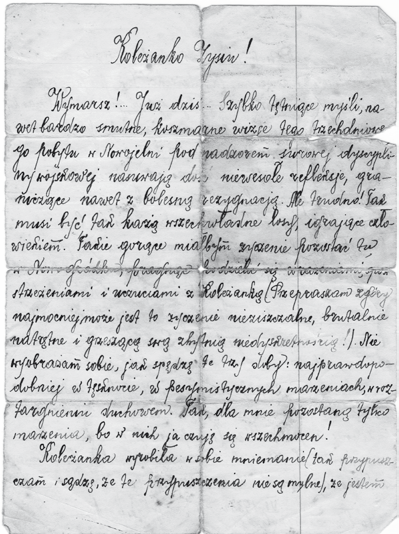 Koleżanko Zysiu!
Wymarsz!... Już dziś... Szybko tętniące myśli, na-
wet bardzo smutne, koszmarne wizje tego trzechdniowe-
go pobytu w Nowojelni pod nadzorem surowej dyscypli-
ny wojskowej nasuwają dość niewesołe refleksje, gra-
niczące nawet z bolesną rezygnacją. Ale trudno! Tak
musi być, tak każą wszechwładne losy, igrające czło-
wiekiem. Jakie gorące miałbym życzenie pozostać tu
w Nowogródku, i pragnąc podzielić się wrażeniami,
strzeżeniami i uczuciami z Koleżanką (Przepraszam z góry
najmocniej, może jest to życzenie nieziszczalne, brutalnie
natrętne i grzeszące swą zbytnią niedyskretnością!). Nie
wyobrażam sobie, jak spędzę te trzy doby: najprawdopo-
dobniej w tęsknocie, w pesymistycznych marzeniach, w roz-
targnieniu duchowem. Tak, dla mnie pozostaną tylko
marzenia, bo w nich ja czuję się wszechmocen!
Koleżanka wyrobiła w sobie mniemanie (tak przypusz-
czam i sądzę, że te przypuszczenia nie są mylne), że jestem